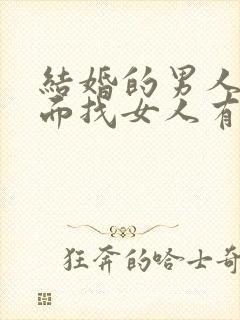 結婚的男人
而找女人有
狂奔的哈士奇